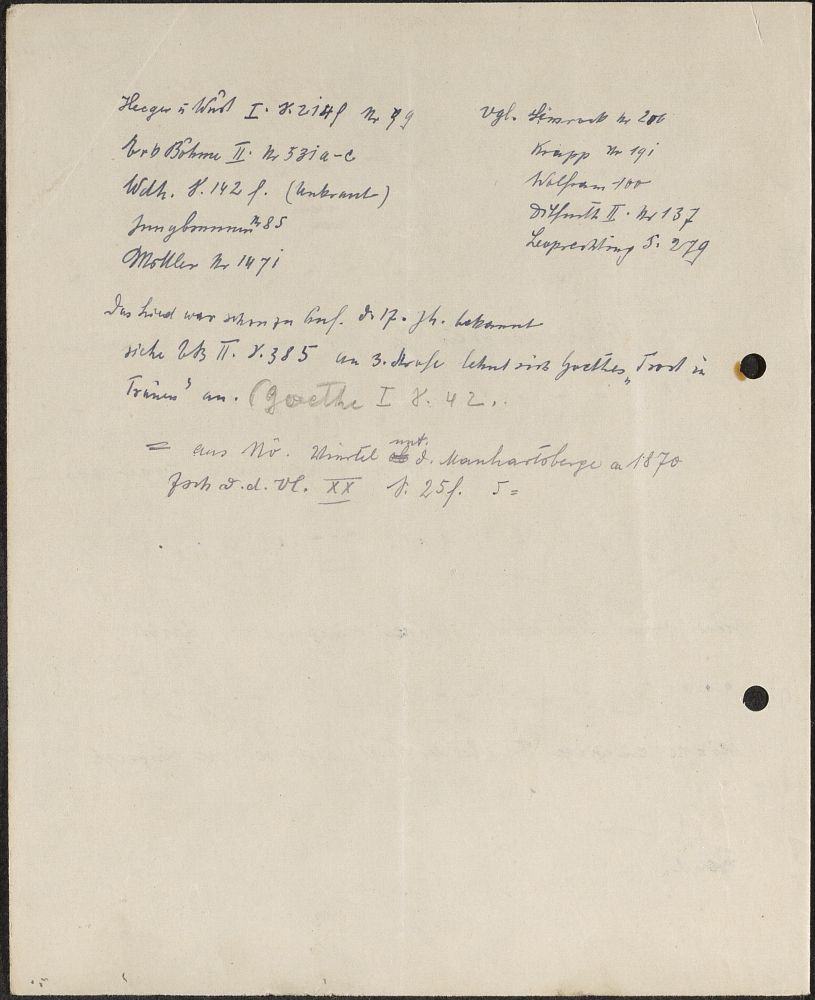 Heeger u Wüst I. S. 214f Nr 99
Erk Böhme II. Nr 531a-c
Wdh. S. 142 f. (Unkraut)
Jungbrunnen Nr 85
Möttler Nr 1471
vgl. Simrock Nr 206
Krapp Nr 191
Wolfram 100
Ditfurth II. Nr 137
Leoprechting S. 279
Das Lied war schon zu Anf. d. 17. Jh. bekannt
siehe EB II. S. 385 an 3. Strofe lehnt sich Goethes „Trost in
Tränen" an. (Goethe I S. 42..
= aus Nö. Viertel unt. d. Manhartsberge a 1870
Zsch d. d. Vl. XX S. 25f. 5 =